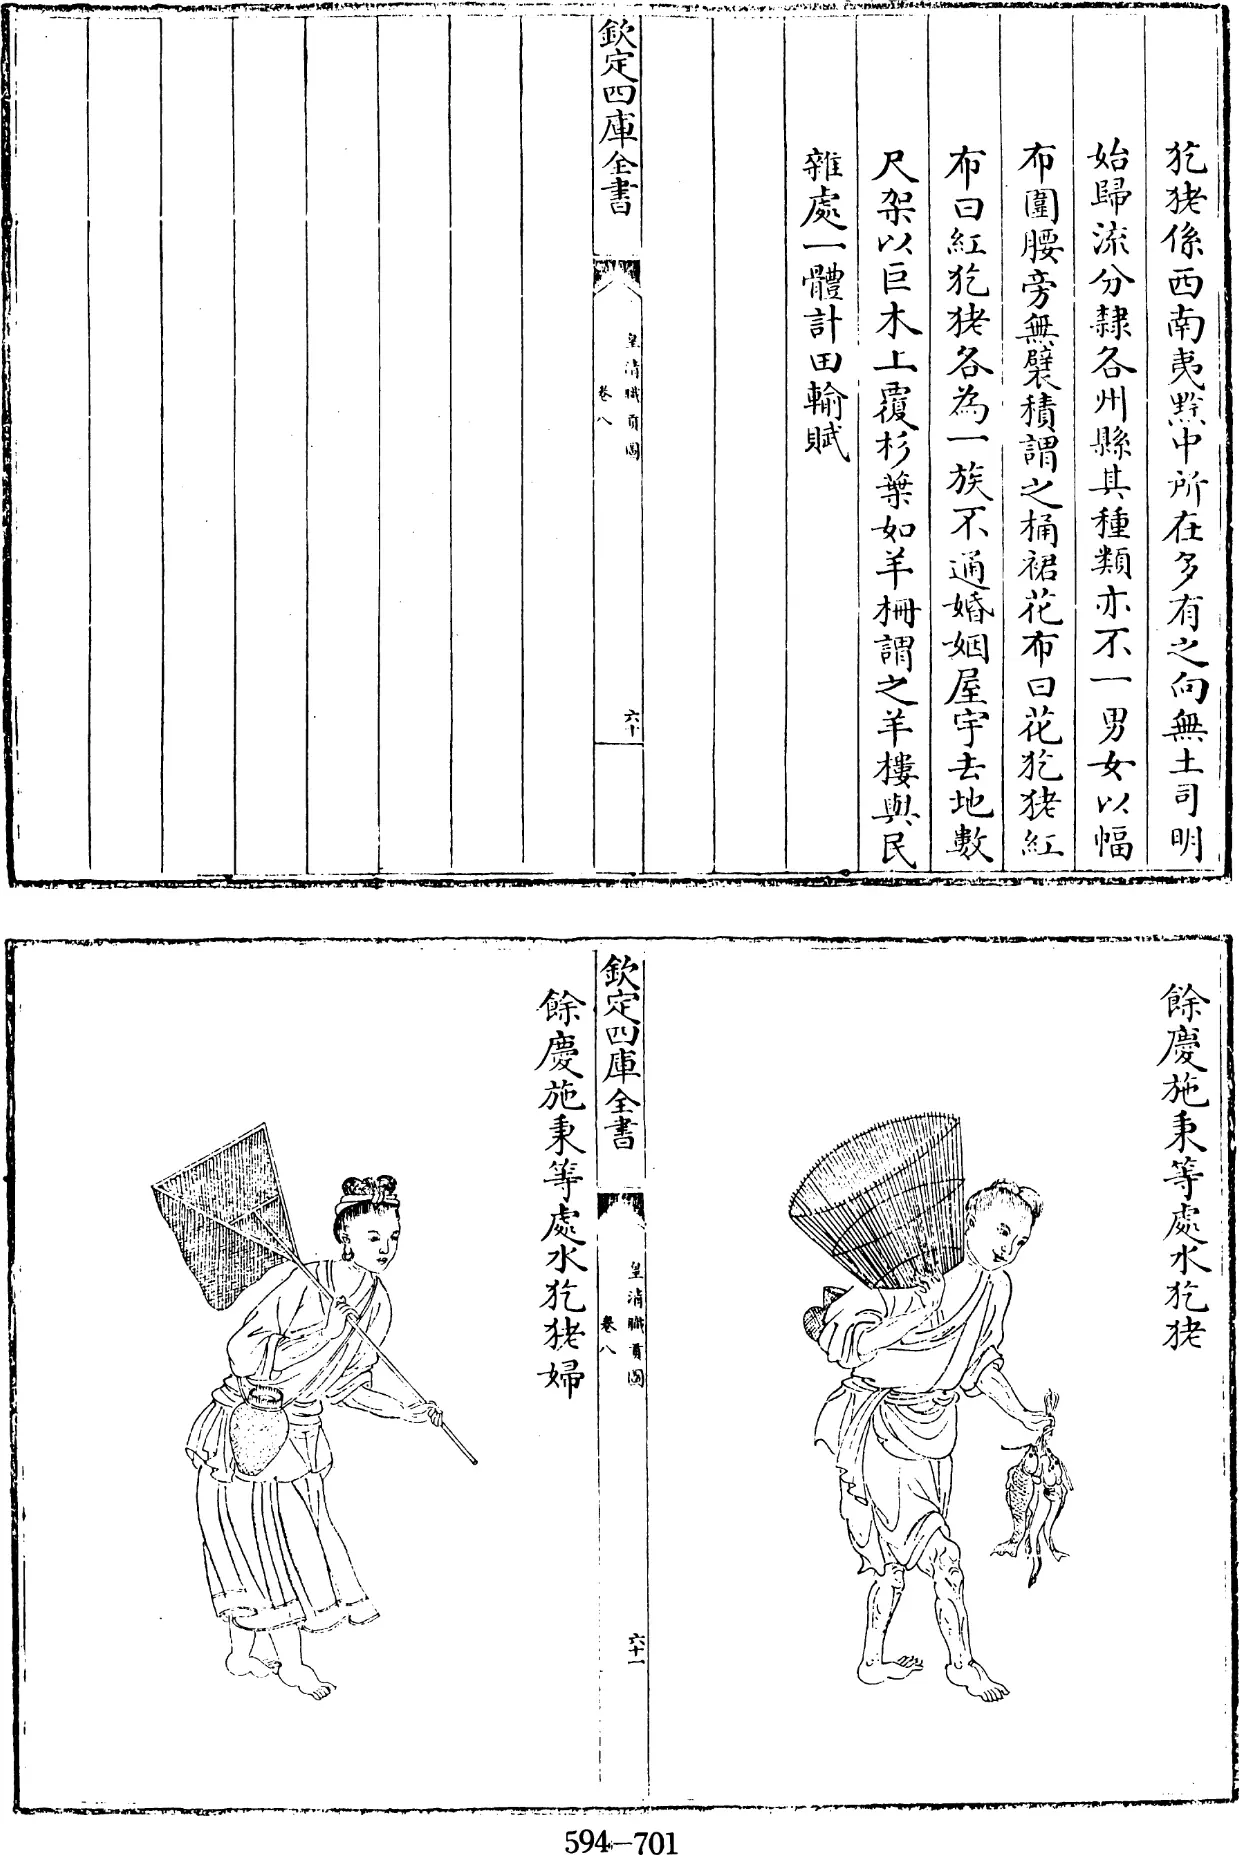 犵狫係西南夷黔中所在多有之向無土司明
始歸流分隸各州縣其種類亦不一男女以幅
布圍腰旁無襞積謂之桶裙花布曰花犵狫紅
布曰紅犵狫各為一族不通婚姻屋宇去地數
尺架以巨木上覆杉葉如羊柵謂之羊樓與民
雜處一體計田輸賦
欽定四庫全書
皇清職貢圖
卷八
六十
餘慶施秉等處水犵狫
欽定四庫全書
皇清職貢圖
卷八
六十一
餘慶施秉等處水犵狫婦
594-701